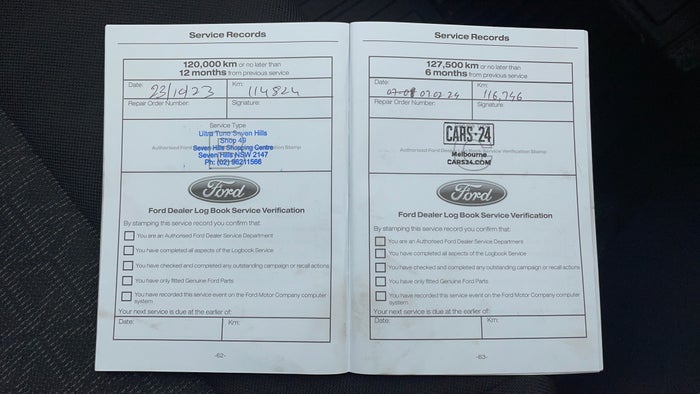 Service Records
120,000 km or no later than
12 months from previous service
Date: Km:
23/10/23 114824
Repair Order Number: Signature:
Service Type
Ultra Tune Seven Hills
Shop 49
Authorised Ford Seven Hills Shopping Centre Stamp
Seven Hills NSW 2147
Ph: (02) 96211566
Ford
Ford Dealer Log Book Service Verification
By stamping this service record you confirm that:
You are an Authorised Ford Dealer Service Department
You have completed all aspects of the Logbook Service
You have checked and completed any outstanding campaign or recall actions
You have only fitted Genuine Ford Parts
You have recorded this service event on the Ford Motor Company computer
system.
Your next service is due at the earlier of:
Date: Km:
-62-
Service Records
127,500 km or no later than
6 months from previous service
Date: Km:
07.02.24 116,746
Repair Order Number: Signature:
CARS-24
Authorised Ford Service Verification Stamp
Melbourne
CARS24.COM
Ford
Ford Dealer Log Book Service Verification
By stamping this service record you confirm that:
You are an Authorised Ford Dealer Service Department
You have completed all aspects of the Logbook Service
You have checked and completed any outstanding campaign or recall actions
You have only fitted Genuine Ford Parts
You have recorded this service event on the Ford Motor Company computer
system.
Your next service is due at the earlier of:
Date: Km:
-63-